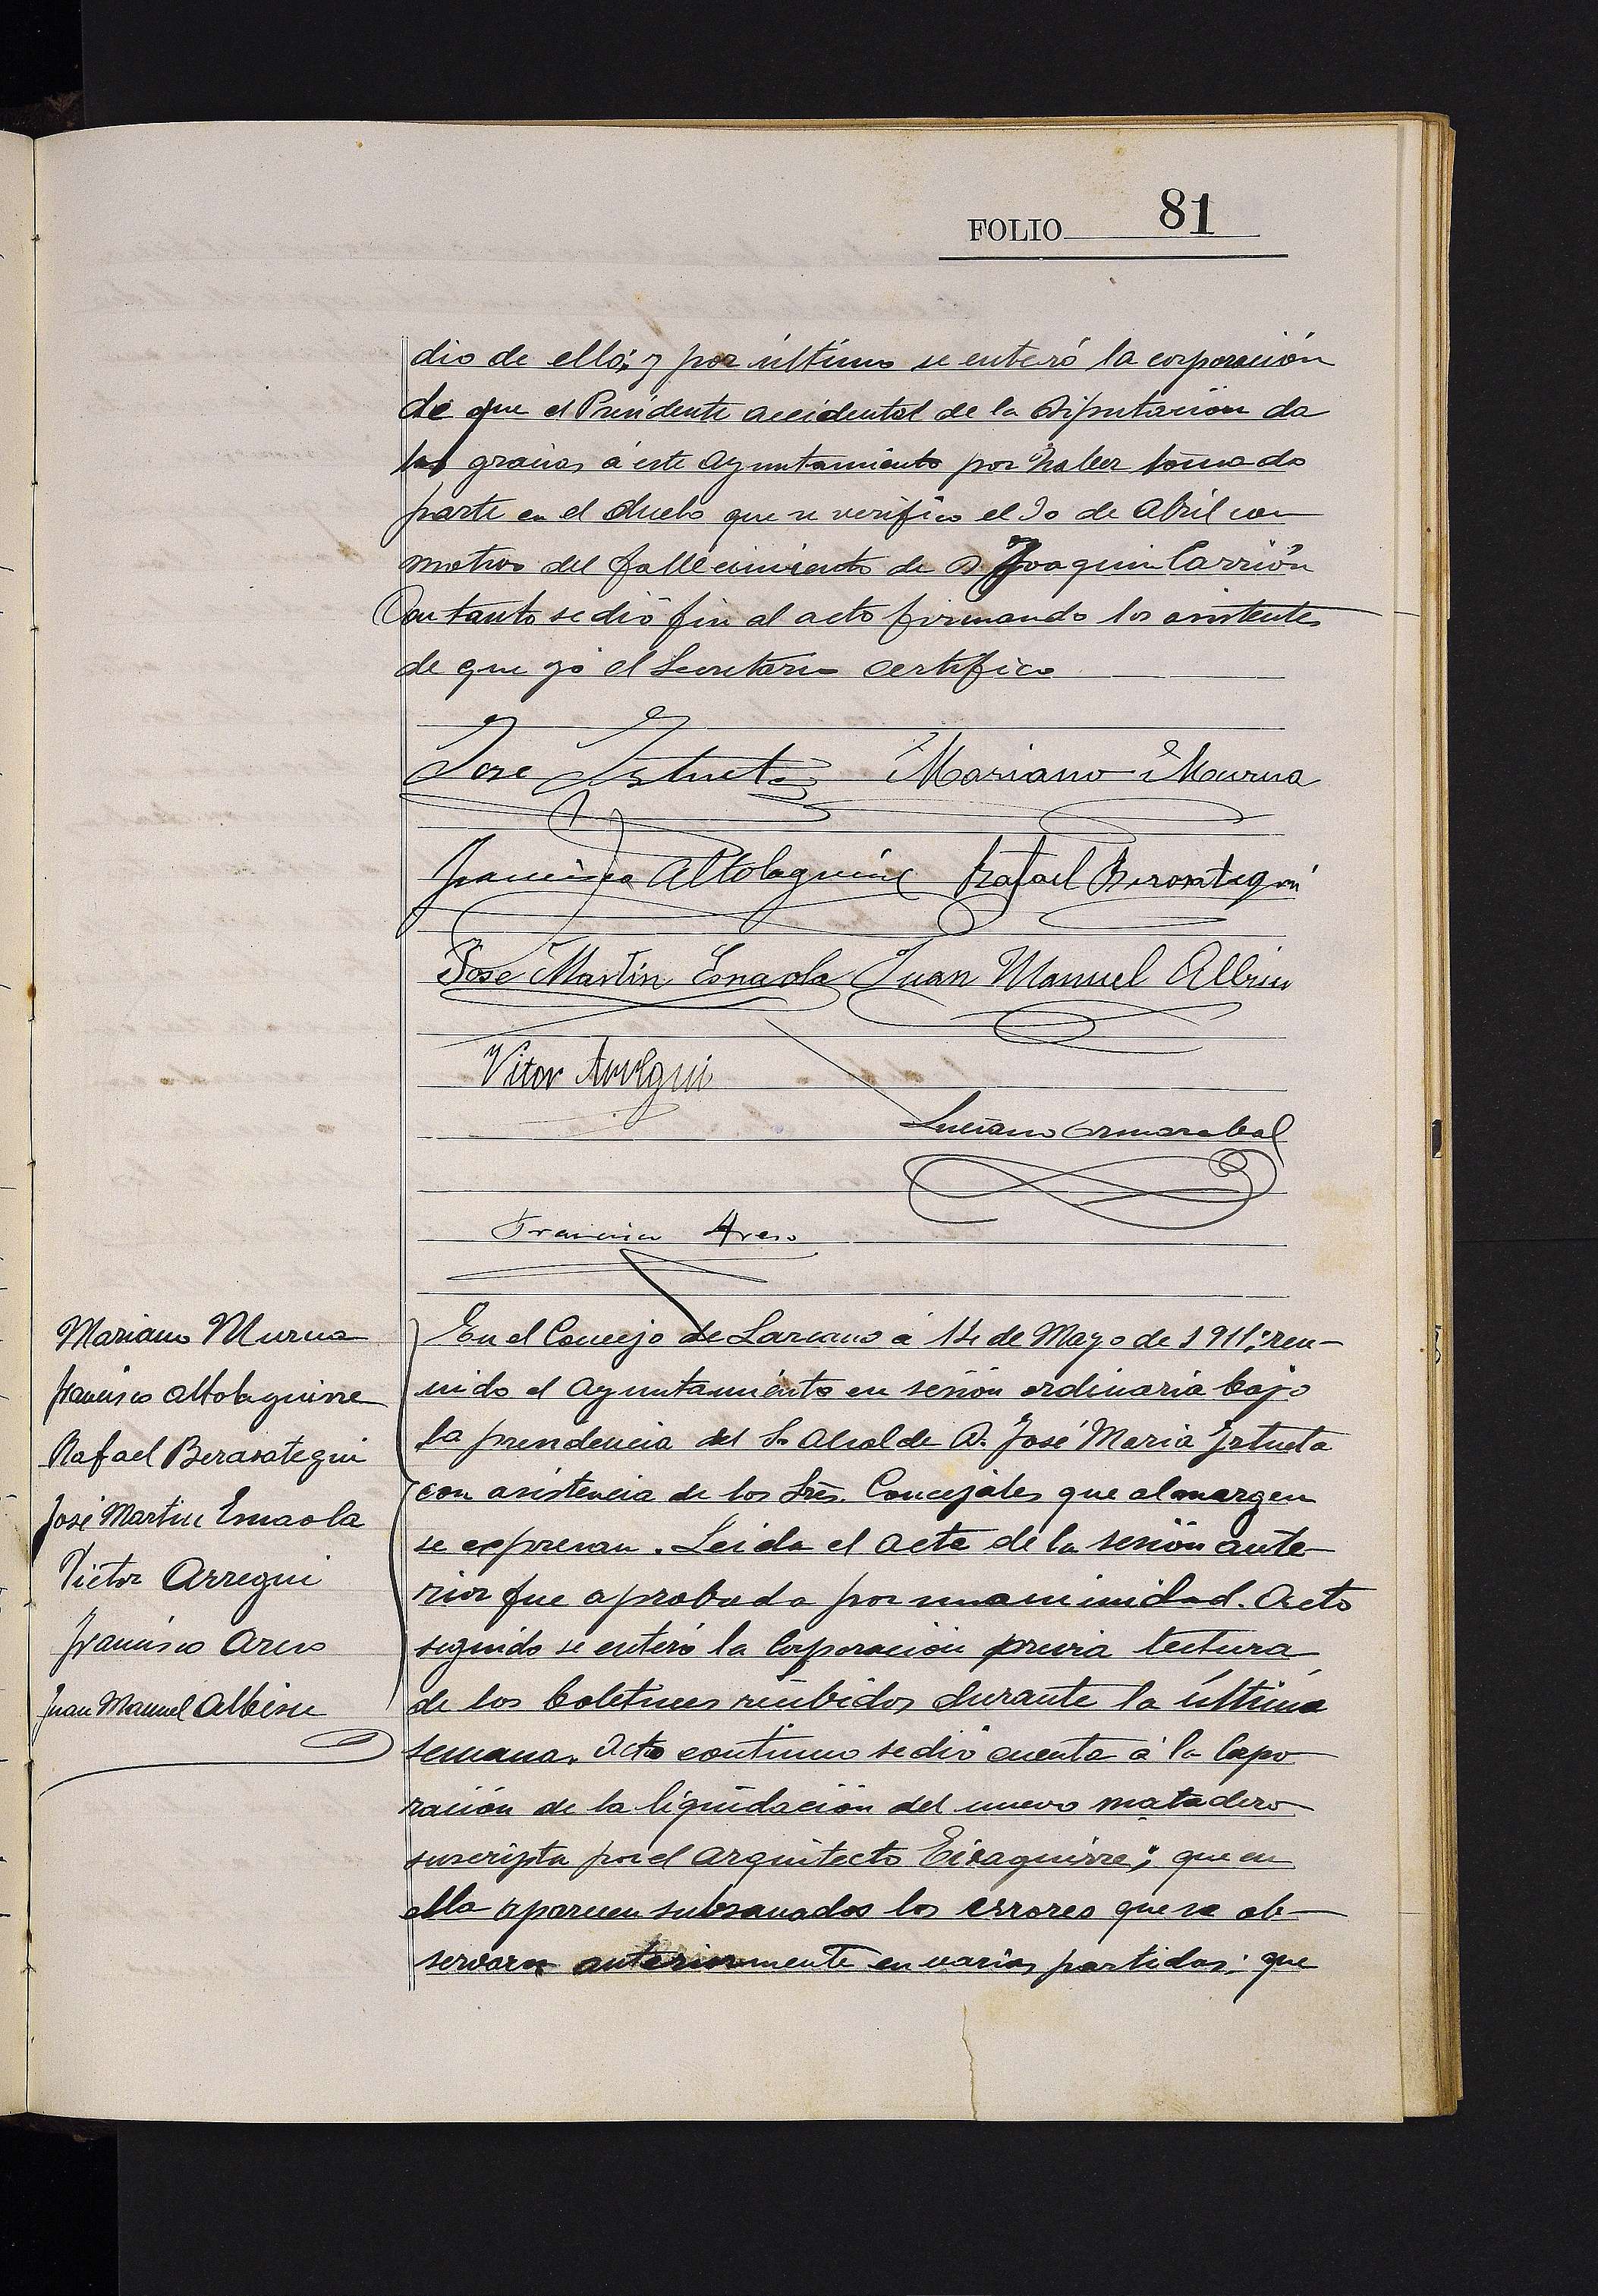 FOLIO 81
dio de ello; y por último se enteró la corporación
de que el Presidente accidental de la Diputación da
las gracias á este Ayuntamiento por haber tomado
parte en el duelo que se verificó el 30 de Abril con
motivo del fallecimiento de D. Joaquin Carrión
Con tanto se dió fin al acto firmando los asistentes
de que yo el Secretario certifico
Jose Istueta Mariano Murua
Francisco Altolaguirre Rafael Berasategui
Jose Martin Esnaola Juan Manuel Albisu
Vitor Arregui
Luciano Ormazabal
Francisco Areso
Mariano Murua
Francisco Altolaguirre
Rafael Berasategui
José Martin Esnaola
Victor Arregui
Francisco Areso
Juan Manuel Albisu
En el Concejo de Lazcano á 14 de Mayo de 1911; reu-
nido el Ayuntamiento en sesión ordinaria bajo
la presidencia del Sr. Alcalde D. José Maria Istueta
con asistencia de los Sres. Concejales que al margen
se expresan. Leida el acta de la sesión ante-
rior fue aprobada por unanimidad. Acto
seguido se enteró la Corporación previa lectura
de los boletines recibidos durante la última
semana. Acto continuo se dió cuenta á la Corpo
ración de la liquidación del nuevo matadero
suscripta por el Arquitecto Eizaguirre; que en
ella aparecen subsanados los errores que se ob-
servaron anteriormente en varias partidas; que